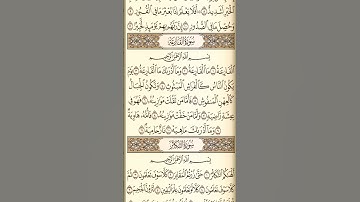 الْخَيْرِ لَشَدِيدٌ ۝ أَفَلَا يَعْلَمُ إِذَا بُعْثِرَ مَا فِي الْقُبُورِ ۝
وَحُصِّلَ مَا فِي الصُّدُورِ ۝ إِنَّ رَبَّهُم بِهِمْ يَوْمَئِذٍ لَّخَبِيرٌ ۝
سُورَةُ الْقَارِعَةِ
بِسْمِ اللَّهِ الرَّحْمَٰنِ الرَّحِيمِ
الْقَارِعَةُ ۝ مَا الْقَارِعَةُ ۝ وَمَا أَدْرَاكَ مَا الْقَارِعَةُ ۝
يَوْمَ يَكُونُ النَّاسُ كَالْفَرَاشِ الْمَبْثُوثِ ۝ وَتَكُونُ الْجِبَالُ
كَالْعِهْنِ الْمَنفُوشِ ۝ فَأَمَّا مَن ثَقُلَتْ مَوَازِينُهُ ۝ فَهُوَ فِي
عِيشَةٍ رَّاضِيَةٍ ۝ وَأَمَّا مَنْ خَفَّتْ مَوَازِينُهُ ۝ فَأُمُّهُ هَاوِيَةٌ
۝ وَمَا أَدْرَاكَ مَا هِيَهْ ۝ نَارٌ حَامِيَةٌ ۝
سُورَةُ التَّكَاثُرِ
بِسْمِ اللَّهِ الرَّحْمَٰنِ الرَّحِيمِ
أَلْهَاكُمُ التَّكَاثُرُ ۝ حَتَّىٰ زُرْتُمُ الْمَقَابِرَ ۝ كَلَّا سَوْفَ تَعْلَمُونَ ۝
ثُمَّ كَلَّا سَوْفَ تَعْلَمُونَ ۝ كَلَّا لَوْ تَعْلَمُونَ عِلْمَ الْيَقِينِ ۝